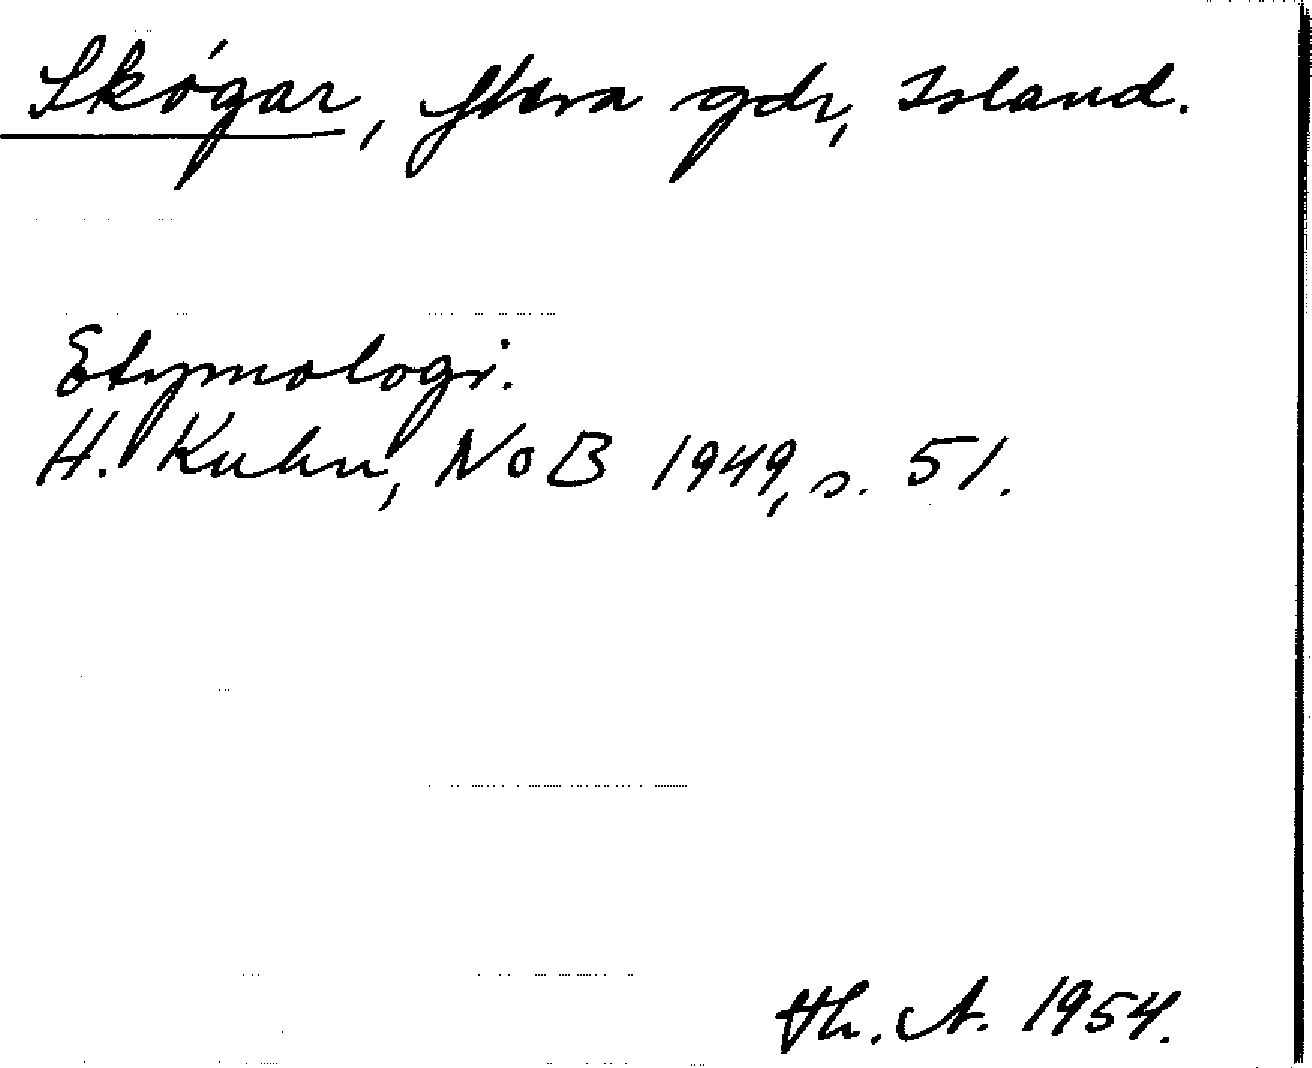 Skógar, flera gdr, Island.
Etymologi.
H. Kuhn, NoB 1949, s. 51.
Th. A. 1954.